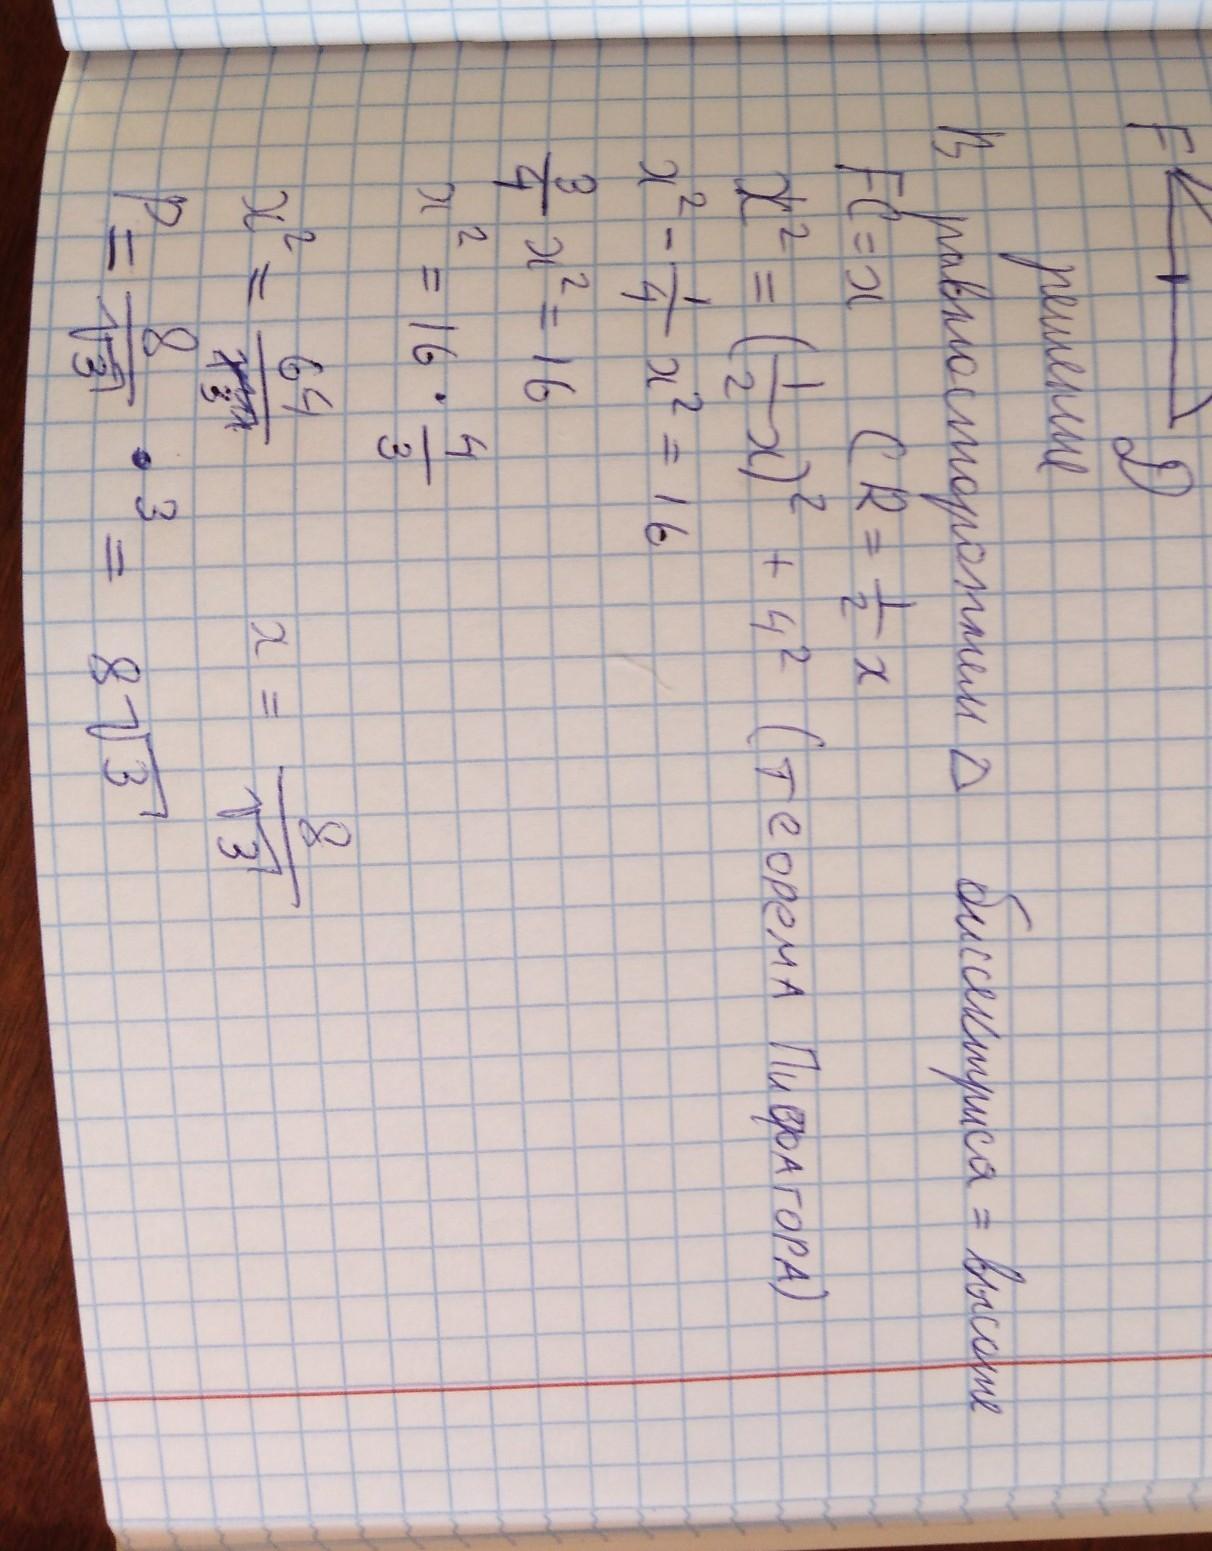 F D
решение
В равностороннем △ биссектриса = высоте
FC = x CR = 1/2 x
x² = (1/2 x)² + 4² (теорема Пифагора)
x² - 1/4 x² = 16
3/4 x² = 16
x² = 16 · 4/3
x² = 64/3 x = 8/√3
p = 8/√3 · 3 = 8√3